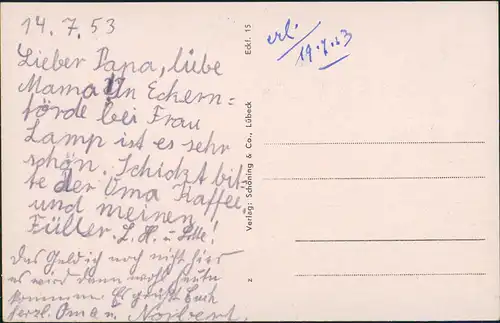 14.7.53
Lieber Papa, liebe
Mama! In Eckern=
förde bei Frau
Lamp ist es sehr
schön. Schickt bit-
te der Oma Kaffee
und meinen
Füller.
Das Geld ist noch nicht hier
es wird dann wohl heute
kommen. Es grüßt Euch
herzl. Oma u. Norbert.
erl.
19.7.53
Eckf. 15
Verlag: Schöning & Co., Lübeck
z